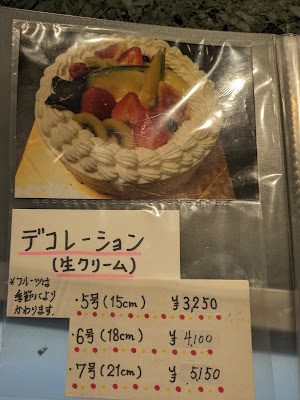 デコレーション
(生クリーム)
*フルーツは
季節により
かわります.
・5号(15cm) ¥3,250
・6号(18cm) ¥4,100
・7号(21cm) ¥5,150